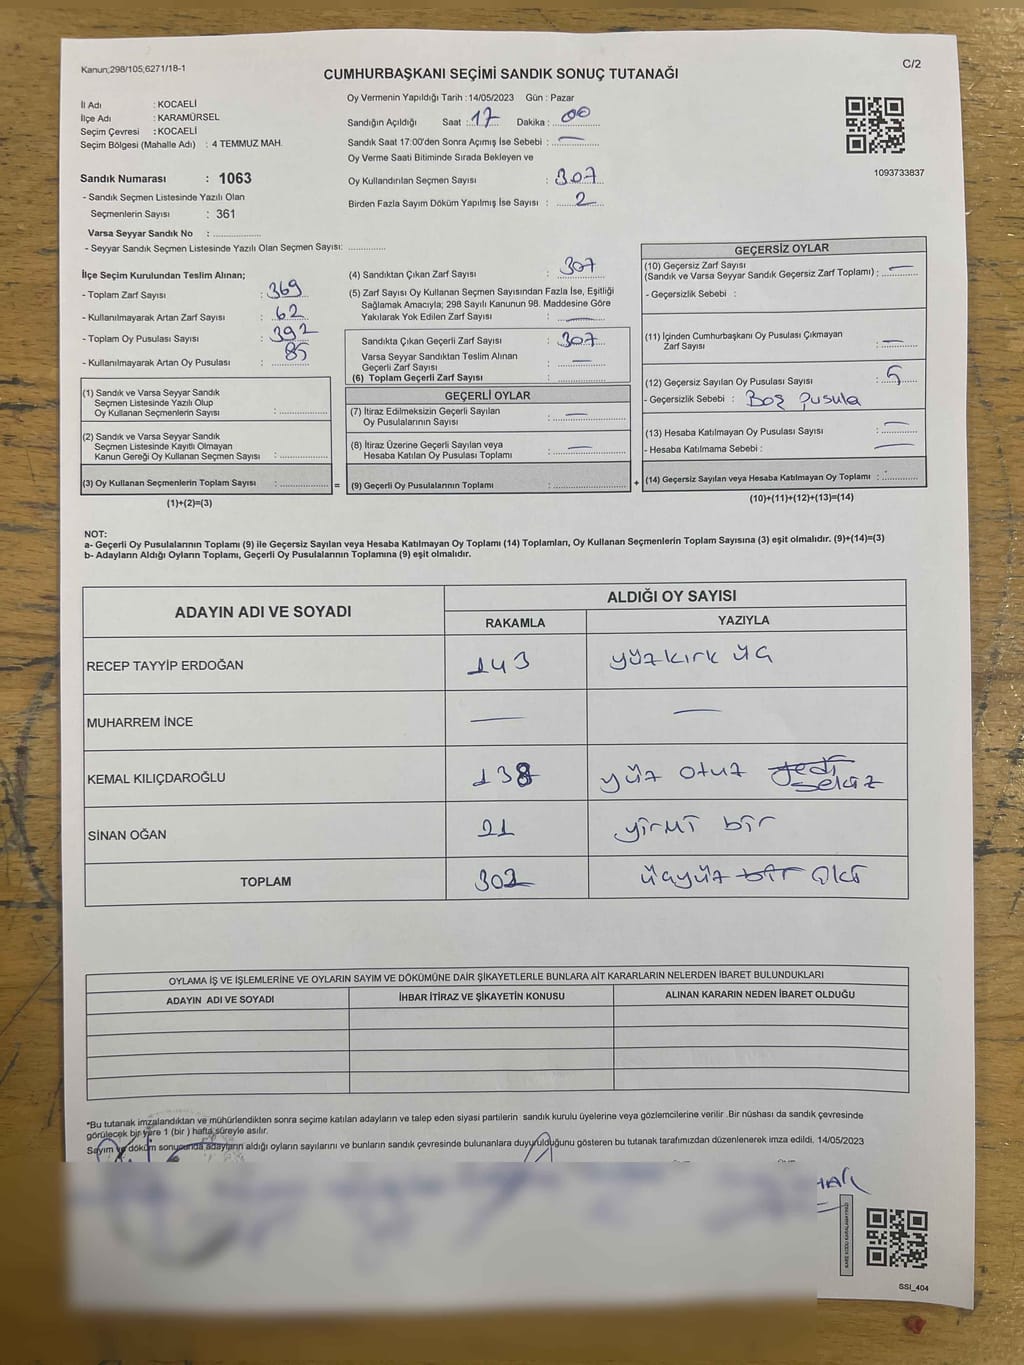 Kanun;298/105,6271/18-1
C/2
CUMHURBAŞKANI SEÇİMİ SANDIK SONUÇ TUTANAĞI
İl Adı : KOCAELİ
İlçe Adı : KARAMÜRSEL
Seçim Çevresi : KOCAELİ
Seçim Bölgesi (Mahalle Adı) : 4 TEMMUZ MAH.
Sandık Numarası : 1063
- Sandık Seçmen Listesinde Yazılı Olan
Seçmenlerin Sayısı : 361
Varsa Seyyar Sandık No : ..............
- Seyyar Sandık Seçmen Listesinde Yazılı Olan Seçmen Sayısı: ............
Oy Vermenin Yapıldığı Tarih : 14/05/2023 Gün : Pazar
Sandığın Açıldığı Saat : 17 Dakika : 00
Sandık Saat 17:00'den Sonra Açımış İse Sebebi : —
Oy Verme Saati Bitiminde Sırada Bekleyen ve
Oy Kullandırılan Seçmen Sayısı : 307
Birden Fazla Sayım Döküm Yapılmış İse Sayısı : 2
1093733837
İlçe Seçim Kurulundan Teslim Alınan;
- Toplam Zarf Sayısı : 369
- Kullanılmayarak Artan Zarf Sayısı : 62
- Toplam Oy Pusulası Sayısı : 392
- Kullanılmayarak Artan Oy Pusulası : 85
(1) Sandık ve Varsa Seyyar Sandık
Seçmen Listesinde Yazılı Olup
Oy Kullanan Seçmenlerin Sayısı : ..............
(2) Sandık ve Varsa Seyyar Sandık
Seçmen Listesinde Kayıtlı Olmayan
Kanun Gereği Oy Kullanan Seçmen Sayısı : ..............
(3) Oy Kullanan Seçmenlerin Toplam Sayısı : ..............
(1)+(2)=(3)
=
(4) Sandıktan Çıkan Zarf Sayısı : 307
(5) Zarf Sayısı Oy Kullanan Seçmen Sayısından Fazla İse, Eşitliği
Sağlamak Amacıyla; 298 Sayılı Kanunun 98. Maddesine Göre
Yakılarak Yok Edilen Zarf Sayısı : —
Sandıkta Çıkan Geçerli Zarf Sayısı : 307
Varsa Seyyar Sandıktan Teslim Alınan
Geçerli Zarf Sayısı : —
(6) Toplam Geçerli Zarf Sayısı : ..............
GEÇERLİ OYLAR
(7) İtiraz Edilmeksizin Geçerli Sayılan
Oy Pusulalarının Sayısı : —
(8) İtiraz Üzerine Geçerli Sayılan veya
Hesaba Katılan Oy Pusulası Toplamı : —
(9) Geçerli Oy Pusulalarının Toplamı : ..............
+
GEÇERSİZ OYLAR
(10) Geçersiz Zarf Sayısı
(Sandık ve Varsa Seyyar Sandık Geçersiz Zarf Toplamı) : —
- Geçersizlik Sebebi :
(11) İçinden Cumhurbaşkanı Oy Pusulası Çıkmayan
Zarf Sayısı : —
(12) Geçersiz Sayılan Oy Pusulası Sayısı : 5
- Geçersizlik Sebebi : Boş Pusula
(13) Hesaba Katılmayan Oy Pusulası Sayısı : —
- Hesaba Katılmama Sebebi : —
(14) Geçersiz Sayılan veya Hesaba Katılmayan Oy Toplamı : ............
(10)+(11)+(12)+(13)=(14)
NOT:
a- Geçerli Oy Pusulalarının Toplamı (9) ile Geçersiz Sayılan veya Hesaba Katılmayan Oy Toplamı (14) Toplamları, Oy Kullanan Seçmenlerin Toplam Sayısına (3) eşit olmalıdır. (9)+(14)=(3)
b- Adayların Aldığı Oyların Toplamı, Geçerli Oy Pusulalarının Toplamına (9) eşit olmalıdır.
ADAYIN ADI VE SOYADI ALDIĞI OY SAYISI
RAKAMLA YAZIYLA
RECEP TAYYİP ERDOĞAN 143 yüzkırk üç
MUHARREM İNCE — —
KEMAL KILIÇDAROĞLU 138 yüz otuz yedi sekiz
SİNAN OĞAN 21 yirmi bir
TOPLAM 302 üçyüz bir iki
OYLAMA İŞ VE İŞLEMLERİNE VE OYLARIN SAYIM VE DÖKÜMÜNE DAİR ŞİKAYETLERLE BUNLARA AİT KARARLARIN NELERDEN İBARET BULUNDUKLARI
ADAYIN ADI VE SOYADI İHBAR İTİRAZ VE ŞİKAYETİN KONUSU ALINAN KARARIN NEDEN İBARET OLDUĞU
*Bu tutanak imzalandıktan ve mühürlendikten sonra seçime katılan adayların ve talep eden siyasi partilerin sandık kurulu üyelerine veya gözlemcilerine verilir .Bir nüshası da sandık çevresinde
görülecek bir yere 1 (bir ) hafta süreyle asılır.
Sayım ve döküm sonucunda adayların aldığı oyların sayılarını ve bunların sandık çevresinde bulunanlara duyurulduğunu gösteren bu tutanak tarafımızdan düzenlenerek imza edildi. 14/05/2023
KARE KODU KARALAMAYINIZ
SSI_404